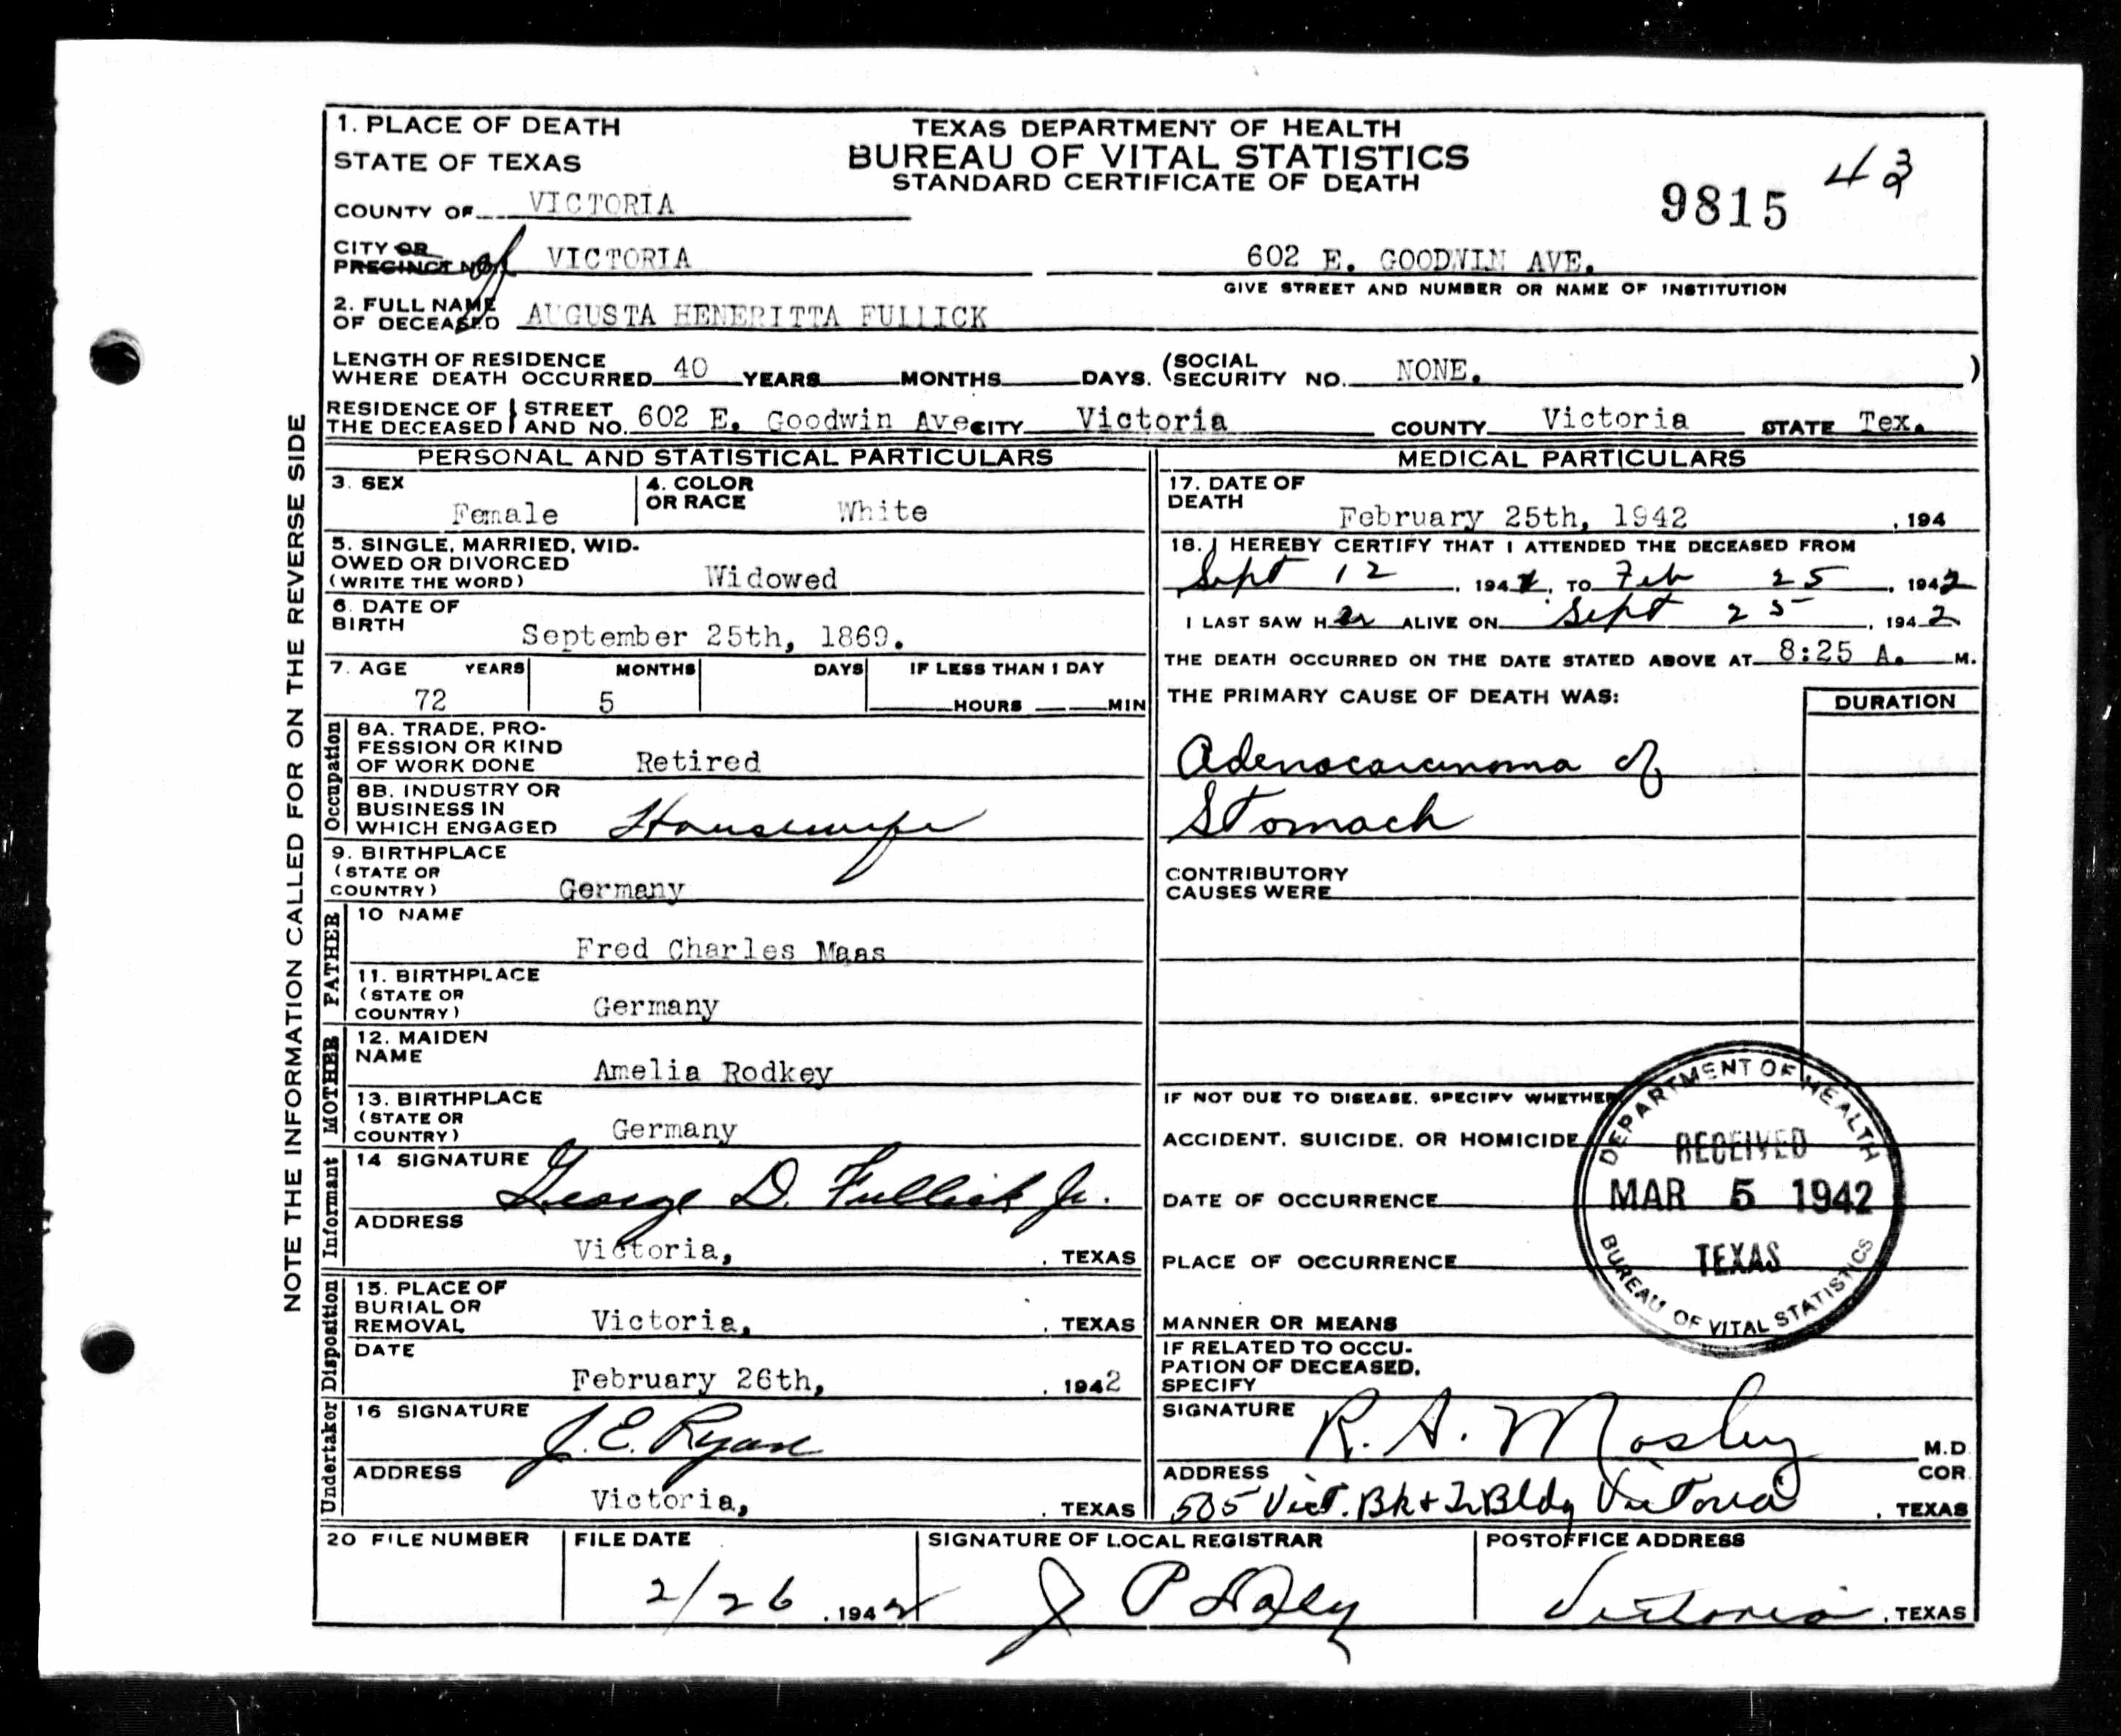 1. PLACE OF DEATH
STATE OF TEXAS
TEXAS DEPARTMENT OF HEALTH
BUREAU OF VITAL STATISTICS
STANDARD CERTIFICATE OF DEATH
43
9815
COUNTY OF VICTORIA
CITY OR PRECINCT NO. of VICTORIA 602 E. GOODWIN AVE.
GIVE STREET AND NUMBER OR NAME OF INSTITUTION
2. FULL NAME
OF DECEASED AUGUSTA HENERITTA FULLICK
LENGTH OF RESIDENCE
WHERE DEATH OCCURRED 40 YEARS MONTHS DAYS. (SOCIAL SECURITY NO. NONE. )
RESIDENCE OF THE DECEASED STREET AND NO. 602 E. Goodwin Ave CITY Victoria COUNTY Victoria STATE Tex.
NOTE THE INFORMATION CALLED FOR ON THE REVERSE SIDE
PERSONAL AND STATISTICAL PARTICULARS
3. SEX Female
4. COLOR OR RACE White
5. SINGLE, MARRIED, WID-
OWED OR DIVORCED
(WRITE THE WORD) Widowed
6. DATE OF
BIRTH September 25th, 1869.
7. AGE YEARS MONTHS DAYS IF LESS THAN 1 DAY
72 5 HOURS MIN
Occupation
8A. TRADE, PRO-
FESSION OR KIND
OF WORK DONE Retired
8B. INDUSTRY OR
BUSINESS IN
WHICH ENGAGED Housewife
9. BIRTHPLACE
(STATE OR
COUNTRY) Germany
FATHER
10 NAME
Fred Charles Maas
11. BIRTHPLACE
(STATE OR
COUNTRY) Germany
MOTHER
12. MAIDEN
NAME
Amelia Rodkey
13. BIRTHPLACE
(STATE OR
COUNTRY) Germany
Informant
14 SIGNATURE George D. Fullick Jr.
ADDRESS
Victoria, , TEXAS
Disposition
15. PLACE OF
BURIAL OR
REMOVAL Victoria, , TEXAS
DATE
February 26th, , 1942
Undertaker
16 SIGNATURE J. E. Ryan
ADDRESS
Victoria, , TEXAS
MEDICAL PARTICULARS
17. DATE OF
DEATH February 25th, 1942 , 194
18. I HEREBY CERTIFY THAT I ATTENDED THE DECEASED FROM
Sept 12 , 1941, TO Feb 25 , 1942
I LAST SAW HER ALIVE ON Sept 25 , 1942
THE DEATH OCCURRED ON THE DATE STATED ABOVE AT 8:25 A. M.
THE PRIMARY CAUSE OF DEATH WAS: DURATION
Adenocarcinoma of
Stomach
CONTRIBUTORY
CAUSES WERE
IF NOT DUE TO DISEASE, SPECIFY WHETHER
ACCIDENT, SUICIDE, OR HOMICIDE
DATE OF OCCURRENCE
PLACE OF OCCURRENCE
MANNER OR MEANS
DEPARTMENT OF HEALTH
RECEIVED
MAR 5 1942
TEXAS
BUREAU OF VITAL STATISTICS
IF RELATED TO OCCU-
PATION OF DECEASED,
SPECIFY
SIGNATURE R. A. Mosley M.D.
ADDRESS COR.
505 Vict. Bk + Tr Bldg Victoria , TEXAS
20 FILE NUMBER FILE DATE SIGNATURE OF LOCAL REGISTRAR POSTOFFICE ADDRESS
2/26 , 1942 J P Daly Victoria , TEXAS